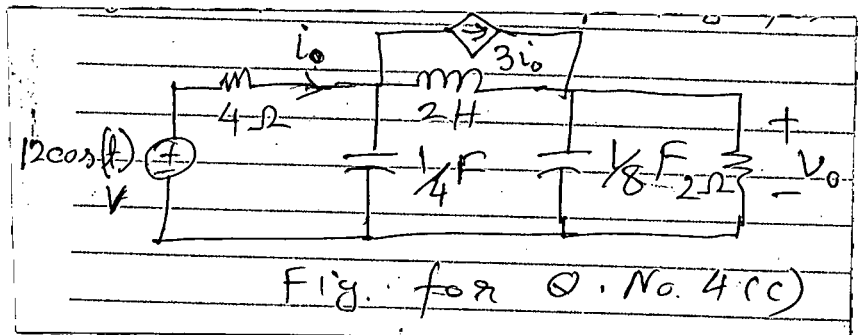 i₀
3i₀
4Ω
2H
12cos(t)
V
+
-
1/4F
1/8F
2Ω
+
v₀
-
Fig. for Q. No. 4(c)